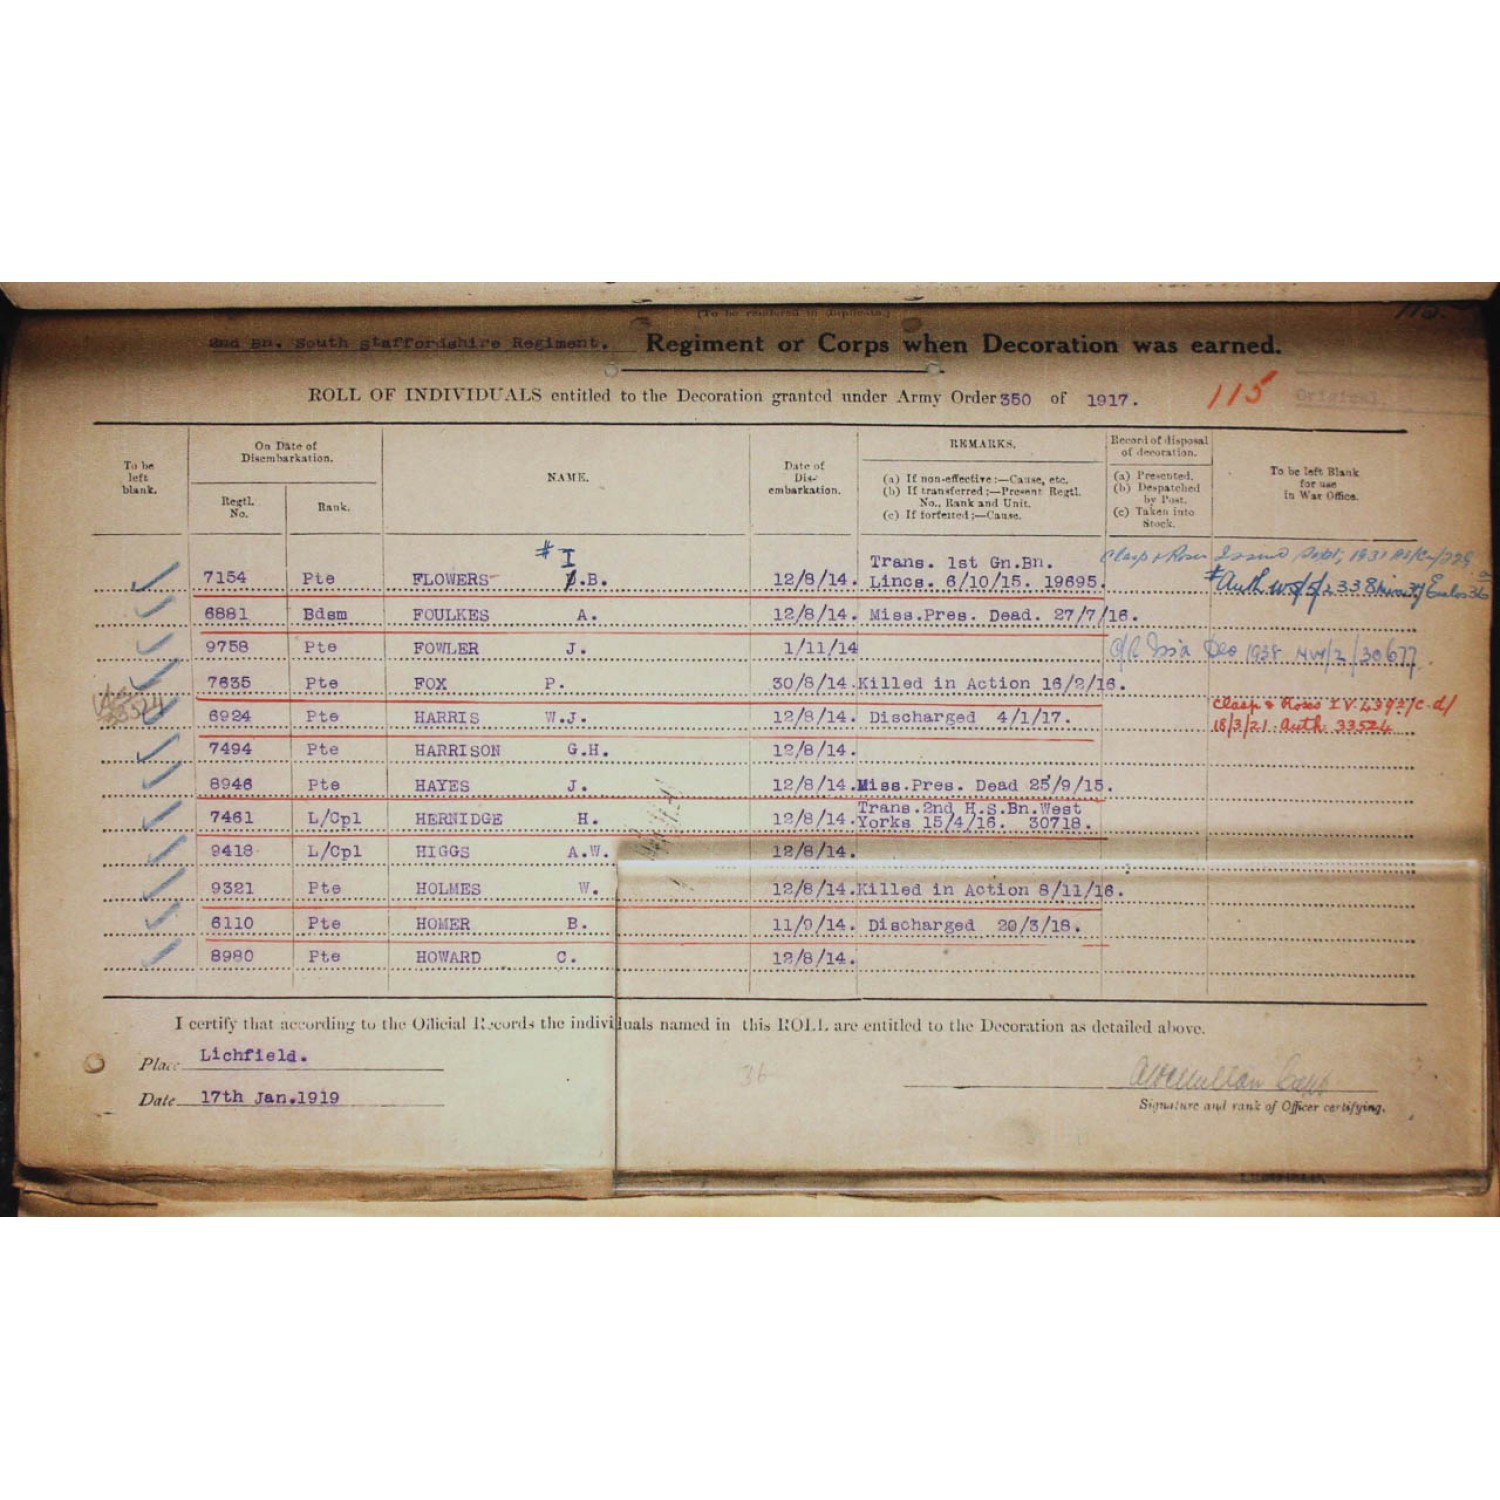 [To be rendered in duplicate.]
115.
2nd Bn. South Staffordshire Regiment. Regiment or Corps when Decoration was earned.
ROLL OF INDIVIDUALS entitled to the Decoration granted under Army Order 350 of 1917. 115 Original.
To be left blank.
On Date of Disembarkation.
Regtl. No.
Rank.
NAME.
Date of Dis-embarkation.
REMARKS.
(a) If non-effective:—Cause, etc.
(b) If transferred:—Present Regtl.
No., Rank and Unit.
(c) If forfeited:—Cause.
Record of disposal of decoration.
(a) Presented.
(b) Despatched by Post.
(c) Taken into Stock.
To be left Blank
for use
in War Office.
# I
Trans. 1st Gn.Bn. Clasp & Roses Issued Sept, 1931
7154 Pte FLOWERS .B. 12/8/14. Lincs. 6/10/15. 19695. # Auth
6881 Bdsm FOULKES A. 12/8/14. Miss.Pres. Dead. 27/7/16.
9758 Pte FOWLER J. 1/11/14 Dec 1938 /2/30677.
7635 Pte FOX P. 30/8/14. Killed in Action 16/2/16.
33524 6924 Pte HARRIS W.J. 12/8/14. Discharged 4/1/17. Clasp & Roses
18/3/21. Auth. 33524
7494 Pte HARRISON G.H. 12/8/14.
8946 Pte HAYES J. 12/8/14. Miss.Pres. Dead 25/9/15.
Trans.2nd H.S.Bn.West
7461 L/Cpl HERNIDGE H. 12/8/14. Yorks 15/4/16. 30718.
9418 L/Cpl HIGGS A.W. 12/8/14.
9321 Pte HOLMES W. 12/8/14. Killed in Action 8/11/16.
6110 Pte HOMER B. 11/9/14. Discharged 20/3/18.
8980 Pte HOWARD C. 12/8/14.
I certify that according to the Official Records the individuals named in this ROLL are entitled to the Decoration as detailed above.
Place Lichfield.
36
Date 17th Jan.1919
Signature and rank of Officer certifying.